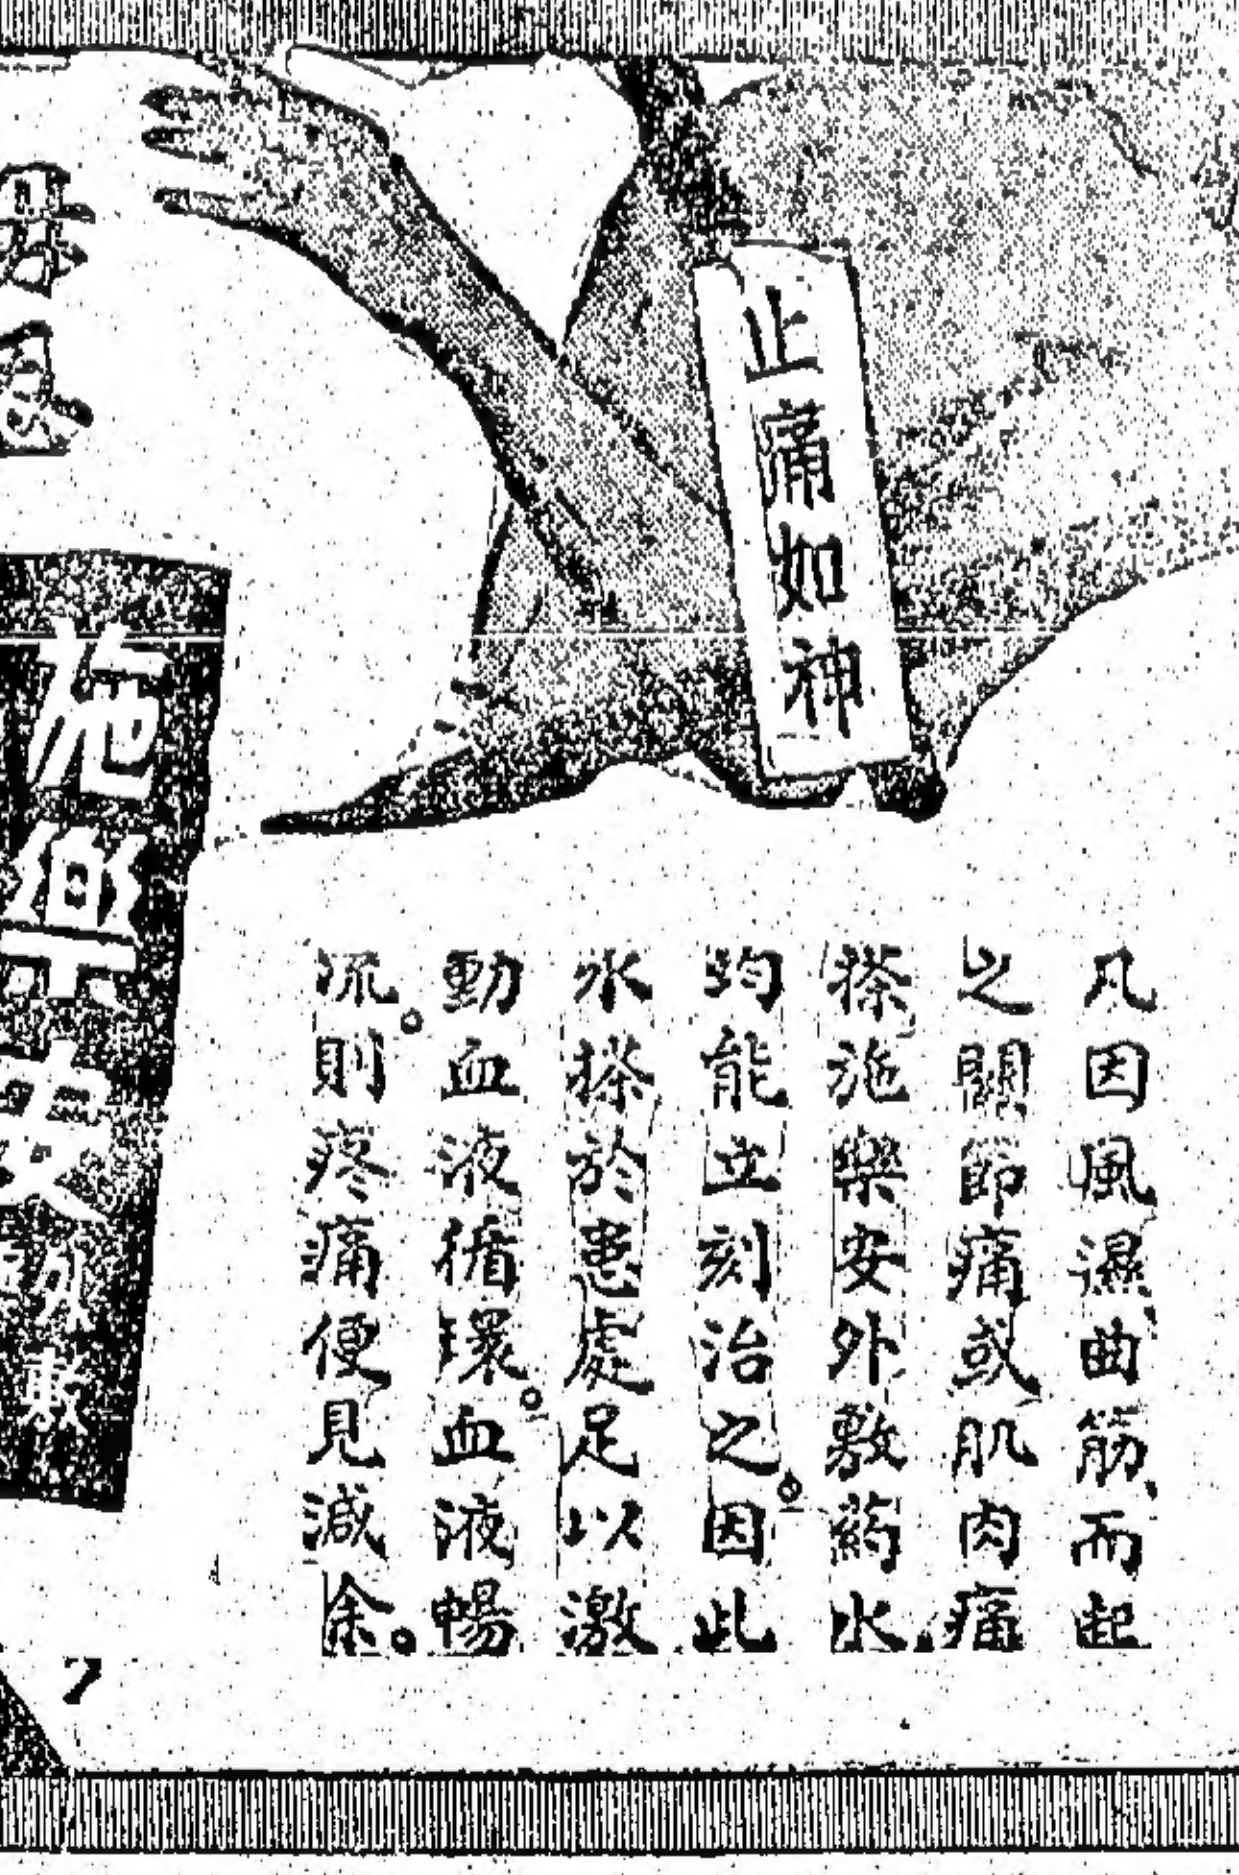 止痛如神
凡因風濕曲筋而起
之關節痛或肌肉痛
搽施樂安外敷葯水
均能立刻治之。因此
水搽於患處足以激
動血液循環。血液暢
流。則疼痛便見減除。
施樂安外敷
7